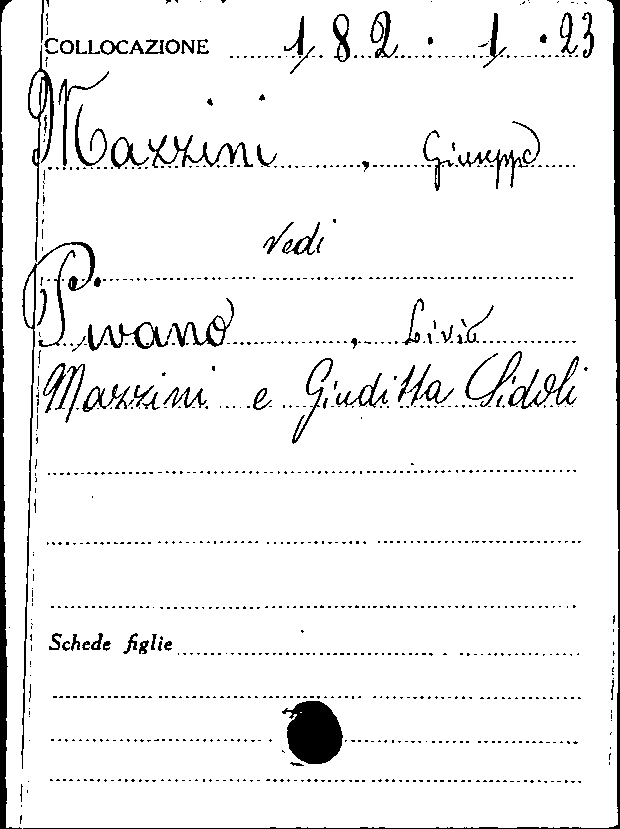 COLLOCAZIONE 182.1.23
Mazzini, Giuseppe
vedi
Pivano, Livio
Mazzini e Giuditta Sidoli
Schede figlie